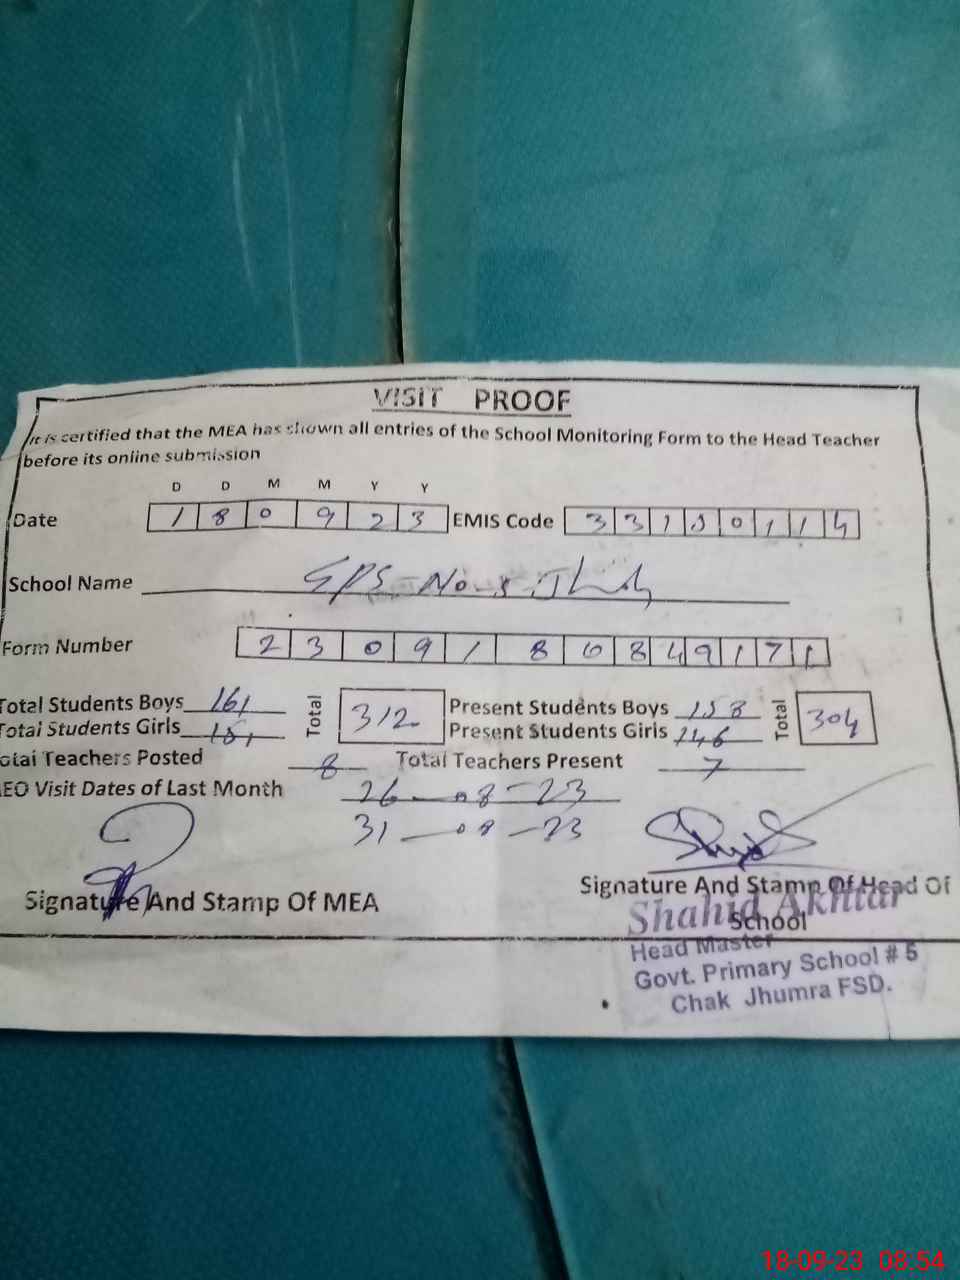 VISIT PROOF
It is certified that the MEA has shown all entries of the School Monitoring Form to the Head Teacher
before its online submission
D D M M Y Y
Date 1 8 0 9 2 3 EMIS Code 3 3 1 5 0 1 1 4
School Name GPS No. 5
Form Number 2 3 0 9 1 8 0 8 4 9 1 7 1
Total Students Boys 161 Total 312 Present Students Boys 158 Total 304
Total Students Girls 151 Present Students Girls 146
otal Teachers Posted 8 Total Teachers Present 7
EO Visit Dates of Last Month 26-08-23
31-08-23
Signature And Stamp Of MEA
Signature And Stamp Of Head Of
School
Shahid Akhtar
Head Master
Govt. Primary School # 5
Chak Jhumra FSD.
18-09-23 08:54